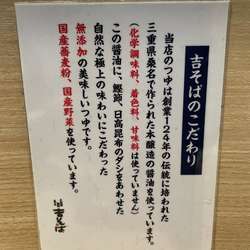 吉そばのこだわり
当店のつゆは創業124年の伝統に培われた
三重県桑名で作られた本醸造の醤油を使っています。
(化学調味料、着色料、甘味料は使っていません)
この醤油に、鰹節、日高昆布のダシをあわせた
自然な極上の味わいにこだわった
無添加の美味しいつゆです。
国産蕎麦粉、国産野菜を使っています。
吉そば